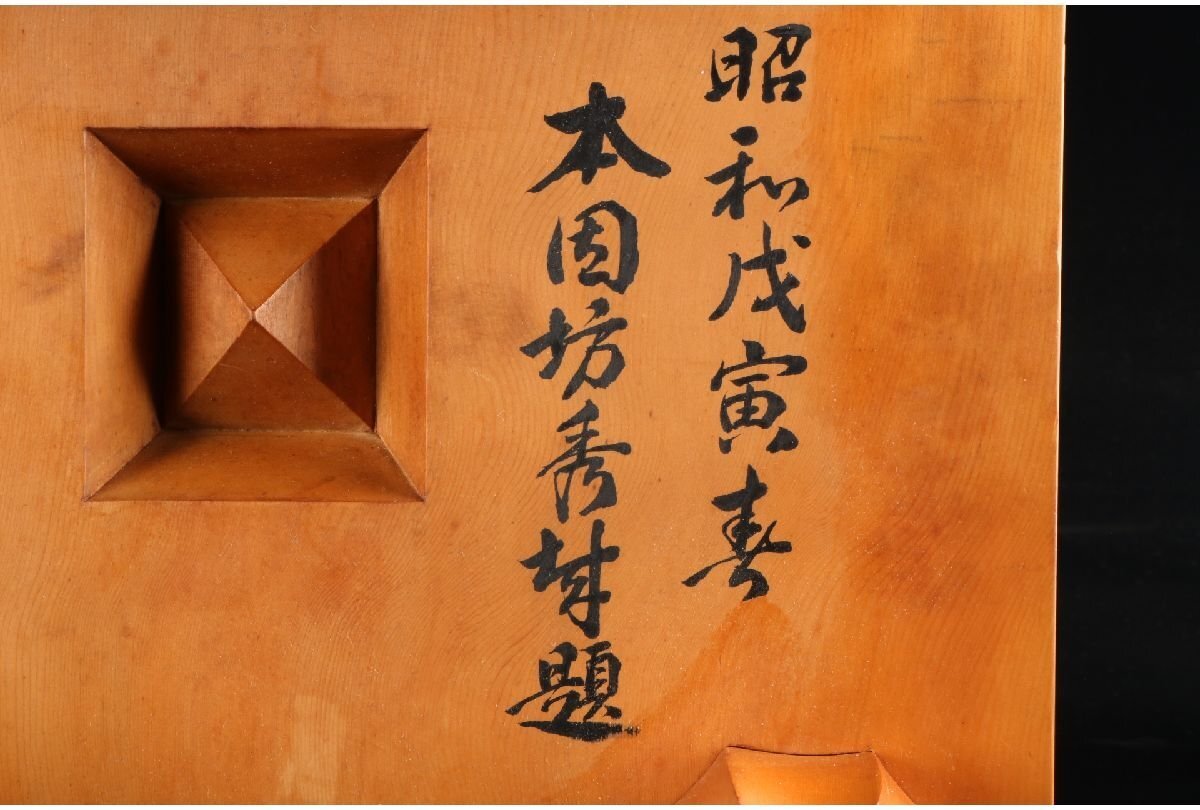 昭和戊寅春
本因坊秀哉題